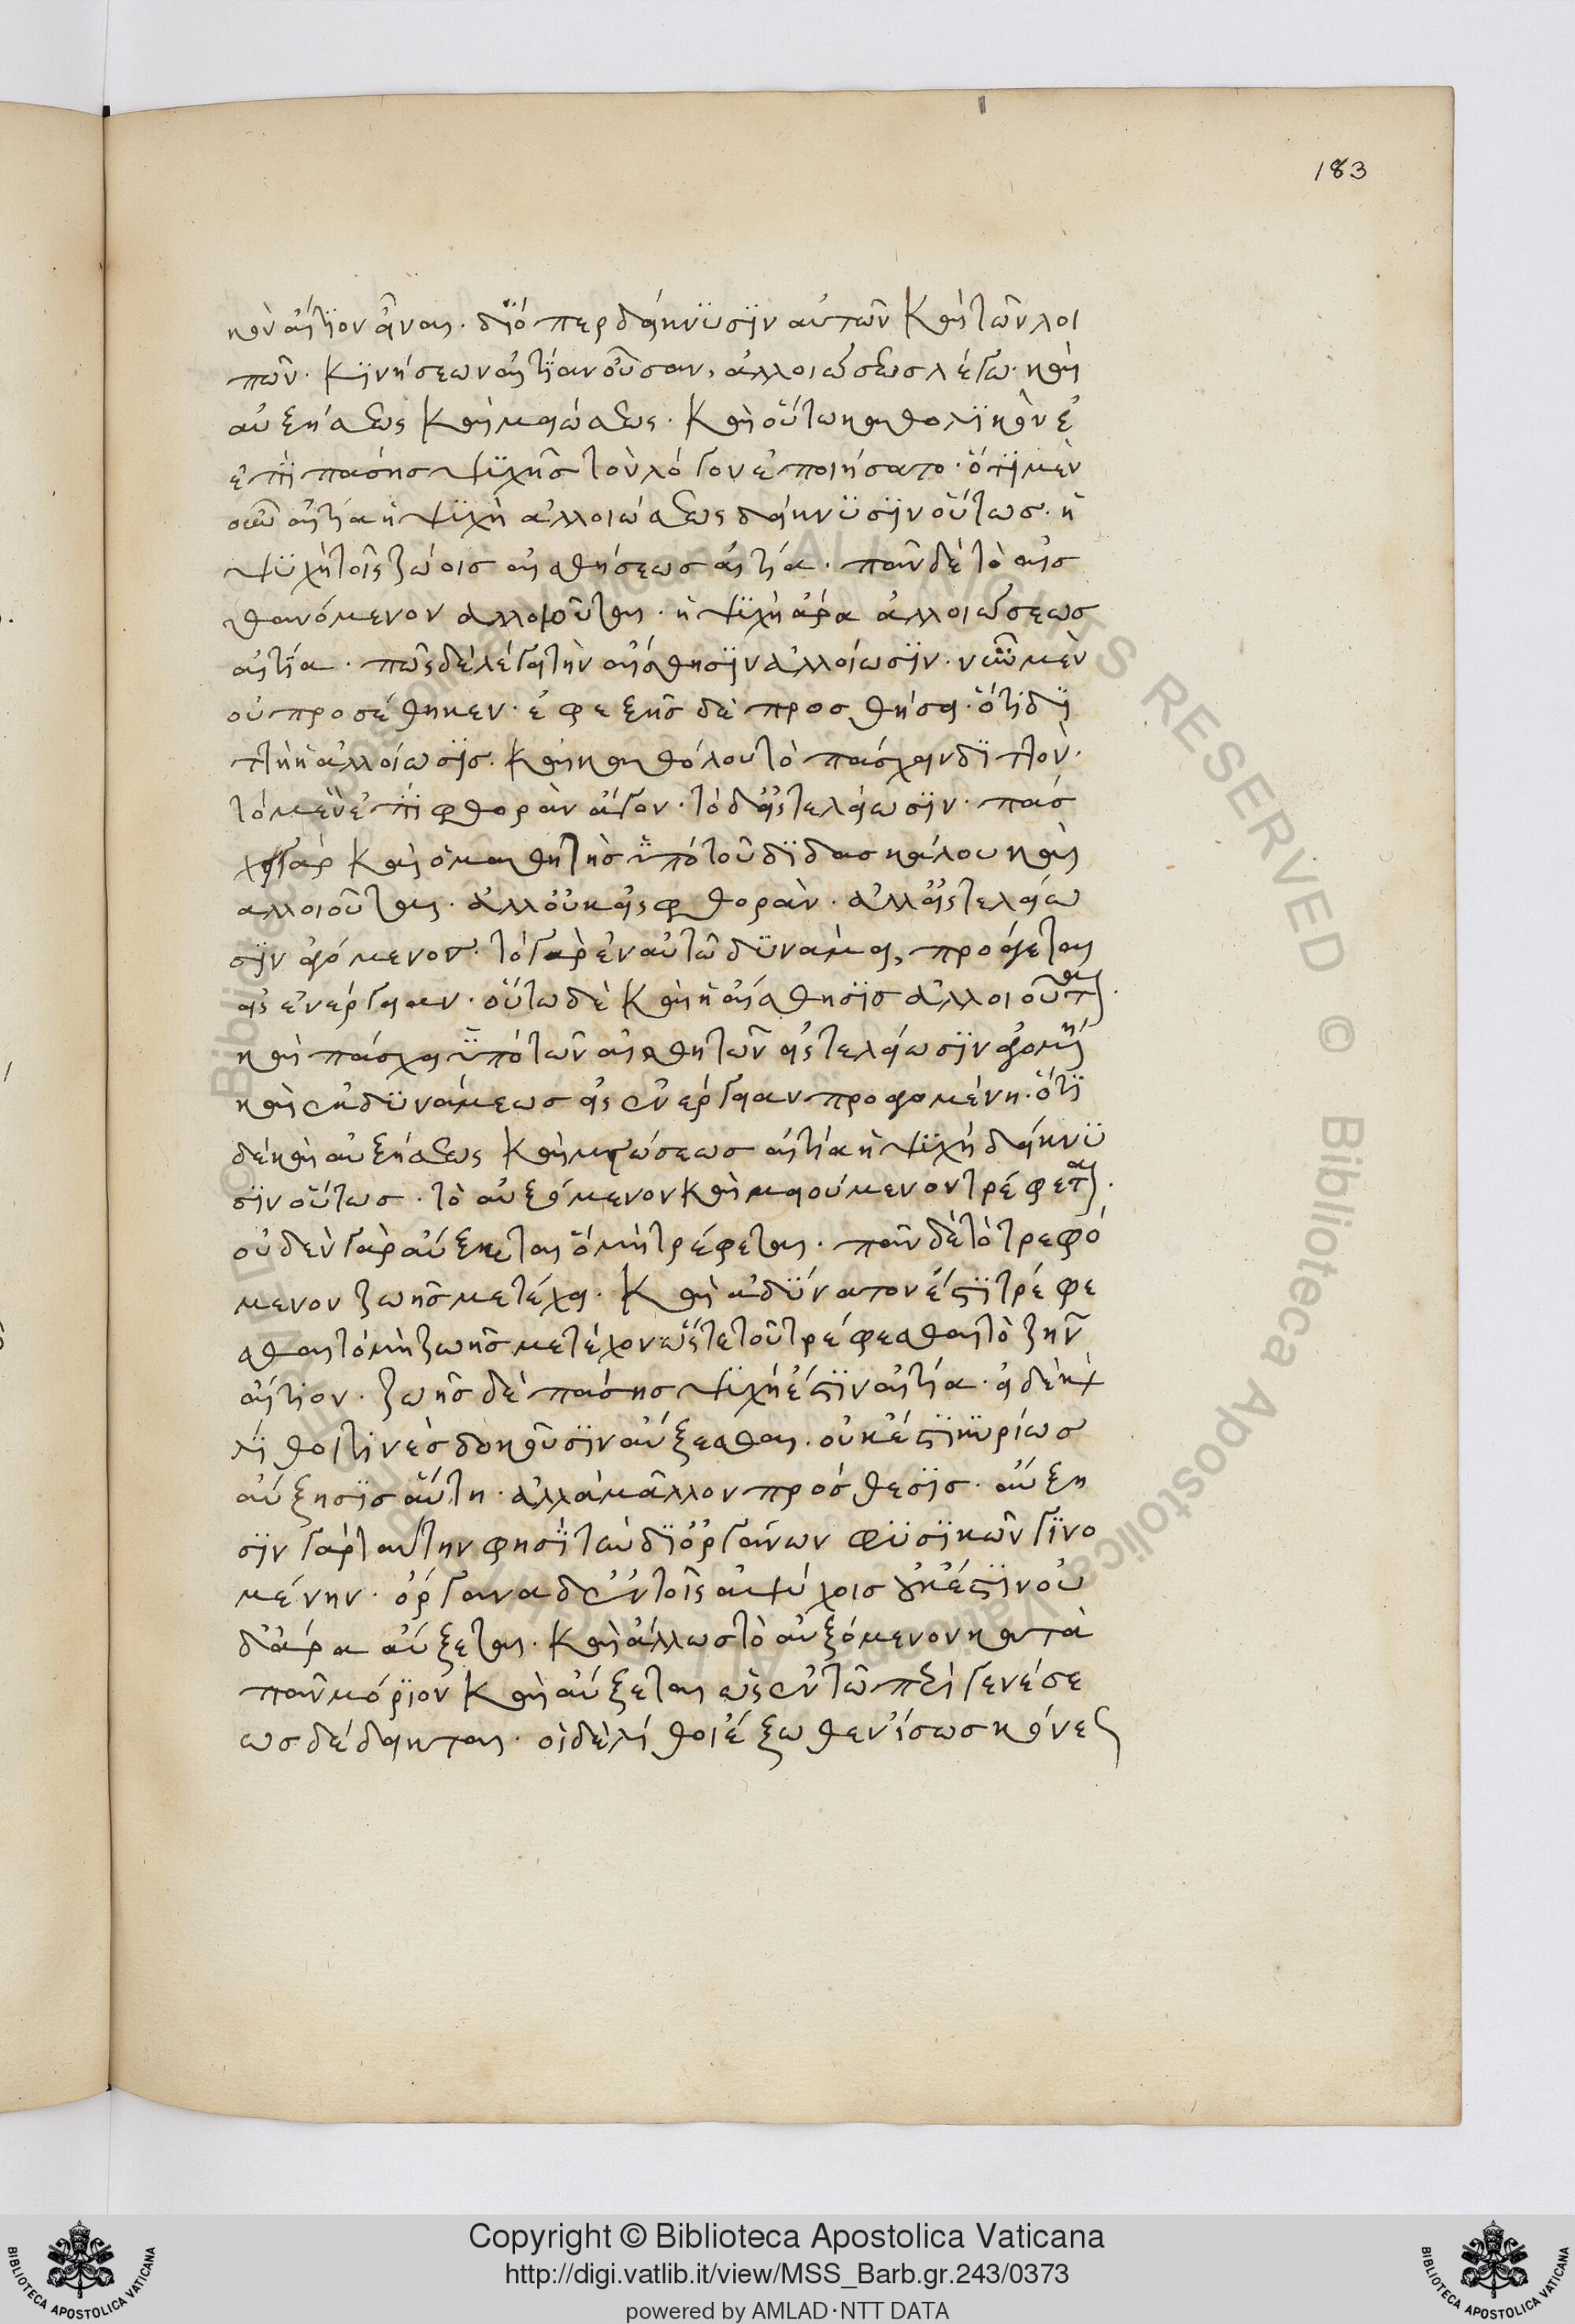 183
κὸν αἴτιον εἶναι. διόπερ δείκνυσιν αὐτῶν καὶ τῶν λοι
πῶν. κινήσεων αἰτίαν οὖσαν, ἀλλοιώσεως λέγω. καὶ
αὐξήσεως καὶ μειώσεως. καὶ οὕτω καθολικὸν ἐ
ἐπὶ πάσης ψυχῆς τὸν λόγον ἐποιήσατο. ὅτι μὲν
οὖν αἰτία ἡ ψυχὴ ἀλλοιώσεως δείκνυσιν οὕτως. ἡ
ψυχὴ τοῖς ζώοις αἰσθήσεως αἰτία. πᾶν δὲ τὸ αἰσ
θανόμενον ἀλλοιοῦται. ἡ ψυχὴ ἄρα ἀλλοιώσεως
αἰτία. πῶς δὲ λέγει τὴν αἴσθησιν ἀλλοίωσιν. νῦν μὲν
οὐ προσέθηκεν. ἐφεξῆς δὲ προσθήσει. ὅτι δι
πλῆ ἡ ἀλλοίωσις. καὶ καθόλου τὸ πάσχειν διπλόν.
τὸ μὲν ἐπὶ φθορὰν ἄγον. τὸ δ' εἰς τελείωσιν. πάσ
χει γὰρ καὶ ὁ μαθητὴς ὑπὸ τοῦ διδασκάλου καὶ
ἀλλοιοῦται. ἀλλ' οὐκ εἰς φθοράν. ἀλλ' εἰς τελείω
σιν ἀγόμενον. τὸ γὰρ ἐν αὐτῶ δυνάμει, προάγεται
εἰς ἐνέργειαν. οὕτω δὲ καὶ ἡ αἴσθησις ἀλλοιοῦται.
καὶ πάσχει ὑπὸ τῶν αἰσθητῶν εἰς τελείωσιν ἀγομένη
καὶ ἐκ δυνάμεως εἰς ἐνέργειαν προαγομένη. ὅτι
δὲ καὶ αὐξήσεως καὶ μειώσεως αἰτία ἡ ψυχὴ δείκνυ
σιν οὕτως. τὸ αὐξόμενον καὶ μειούμενον τρέφεται.
οὐδὲν γὰρ αὔξεται ὃ μὴ τρέφεται. πᾶν δὲ τὸ τρεφό
μενον ζωῆς μετέχει. καὶ ἀδύνατον ἐστὶ τρέφε
σθαι τὸ μὴ ζωῆς μετέχον ὥστε τοῦ τρέφεσθαι τὸ ζῆν
αἴτιον. ζωῆς δὲ πάσης ψυχή ἐστιν αἰτία. εἰ δὲ καὶ
λίθοι τινὲς δοκοῦσιν αὔξεσθαι. οὐκ ἔστι κυρίως
αὔξησις αὕτη. ἀλλὰ μᾶλλον πρόσθεσις. αὔξη
σιν γὰρ ταύτην φησὶ τὴν δι' ὀργάνων φυσικῶν γινο
μένην. ὄργανα δ' ἐν τοῖς ἀψύχοις οὐκ ἔστιν οὐ
δ' ἄρα αὔξεται. καὶ ἄλλως τὸ αὐξόμενον κατὰ
πᾶν μόριον καὶ αὔξεται ὡς ἐν τῶ περὶ γενέσε
ως δέδεικται. οἱ δὲ λίθοι ἔξωθεν ἴσως κόνεως
Copyright © Biblioteca Apostolica Vaticana
http://digi.vatlib.it/view/MSS_Barb.gr.243/0373
powered by AMLAD·NTT DATA